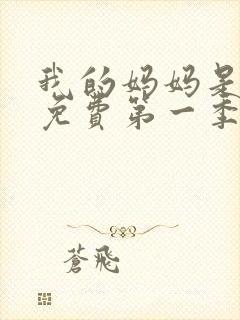 我的妈妈是
免费第一季
蒼飛